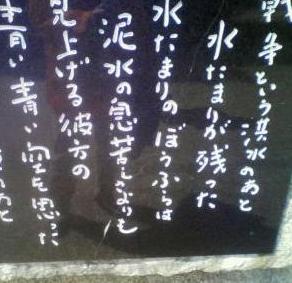 戦争という洪水のあと
水たまりが残った
水たまりのぼうふらは
泥水の息苦しさよりも
見上げる彼方の
青い青い空を思った